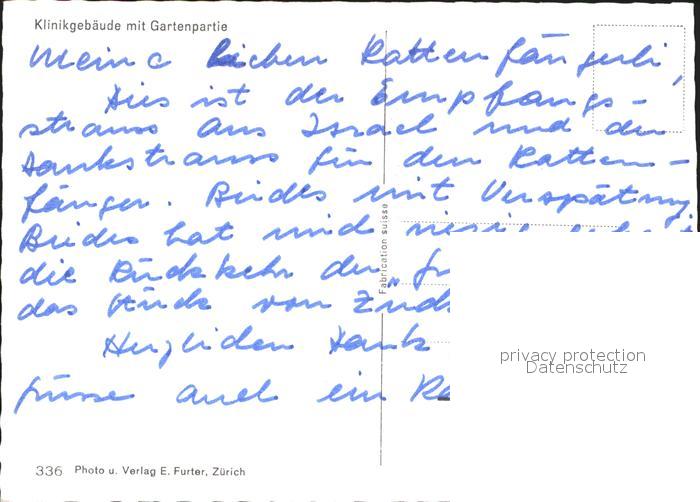 Klinikgebäude mit Gartenpartie
Meine lieben Rattenfängerli,
Dies ist der Empfangs-
strauss aus Israel und der
Dankstrauss für den Ratten-
fänger. Beides mit Verspätung
Beides hat mich riesig
die Rückkehr der
das Stück von
Herzlichen Dank
Grüsse auch ein
Fabrication suisse
privacy protection
Datenschutz
336 Photo u. Verlag E. Furter, Zürich